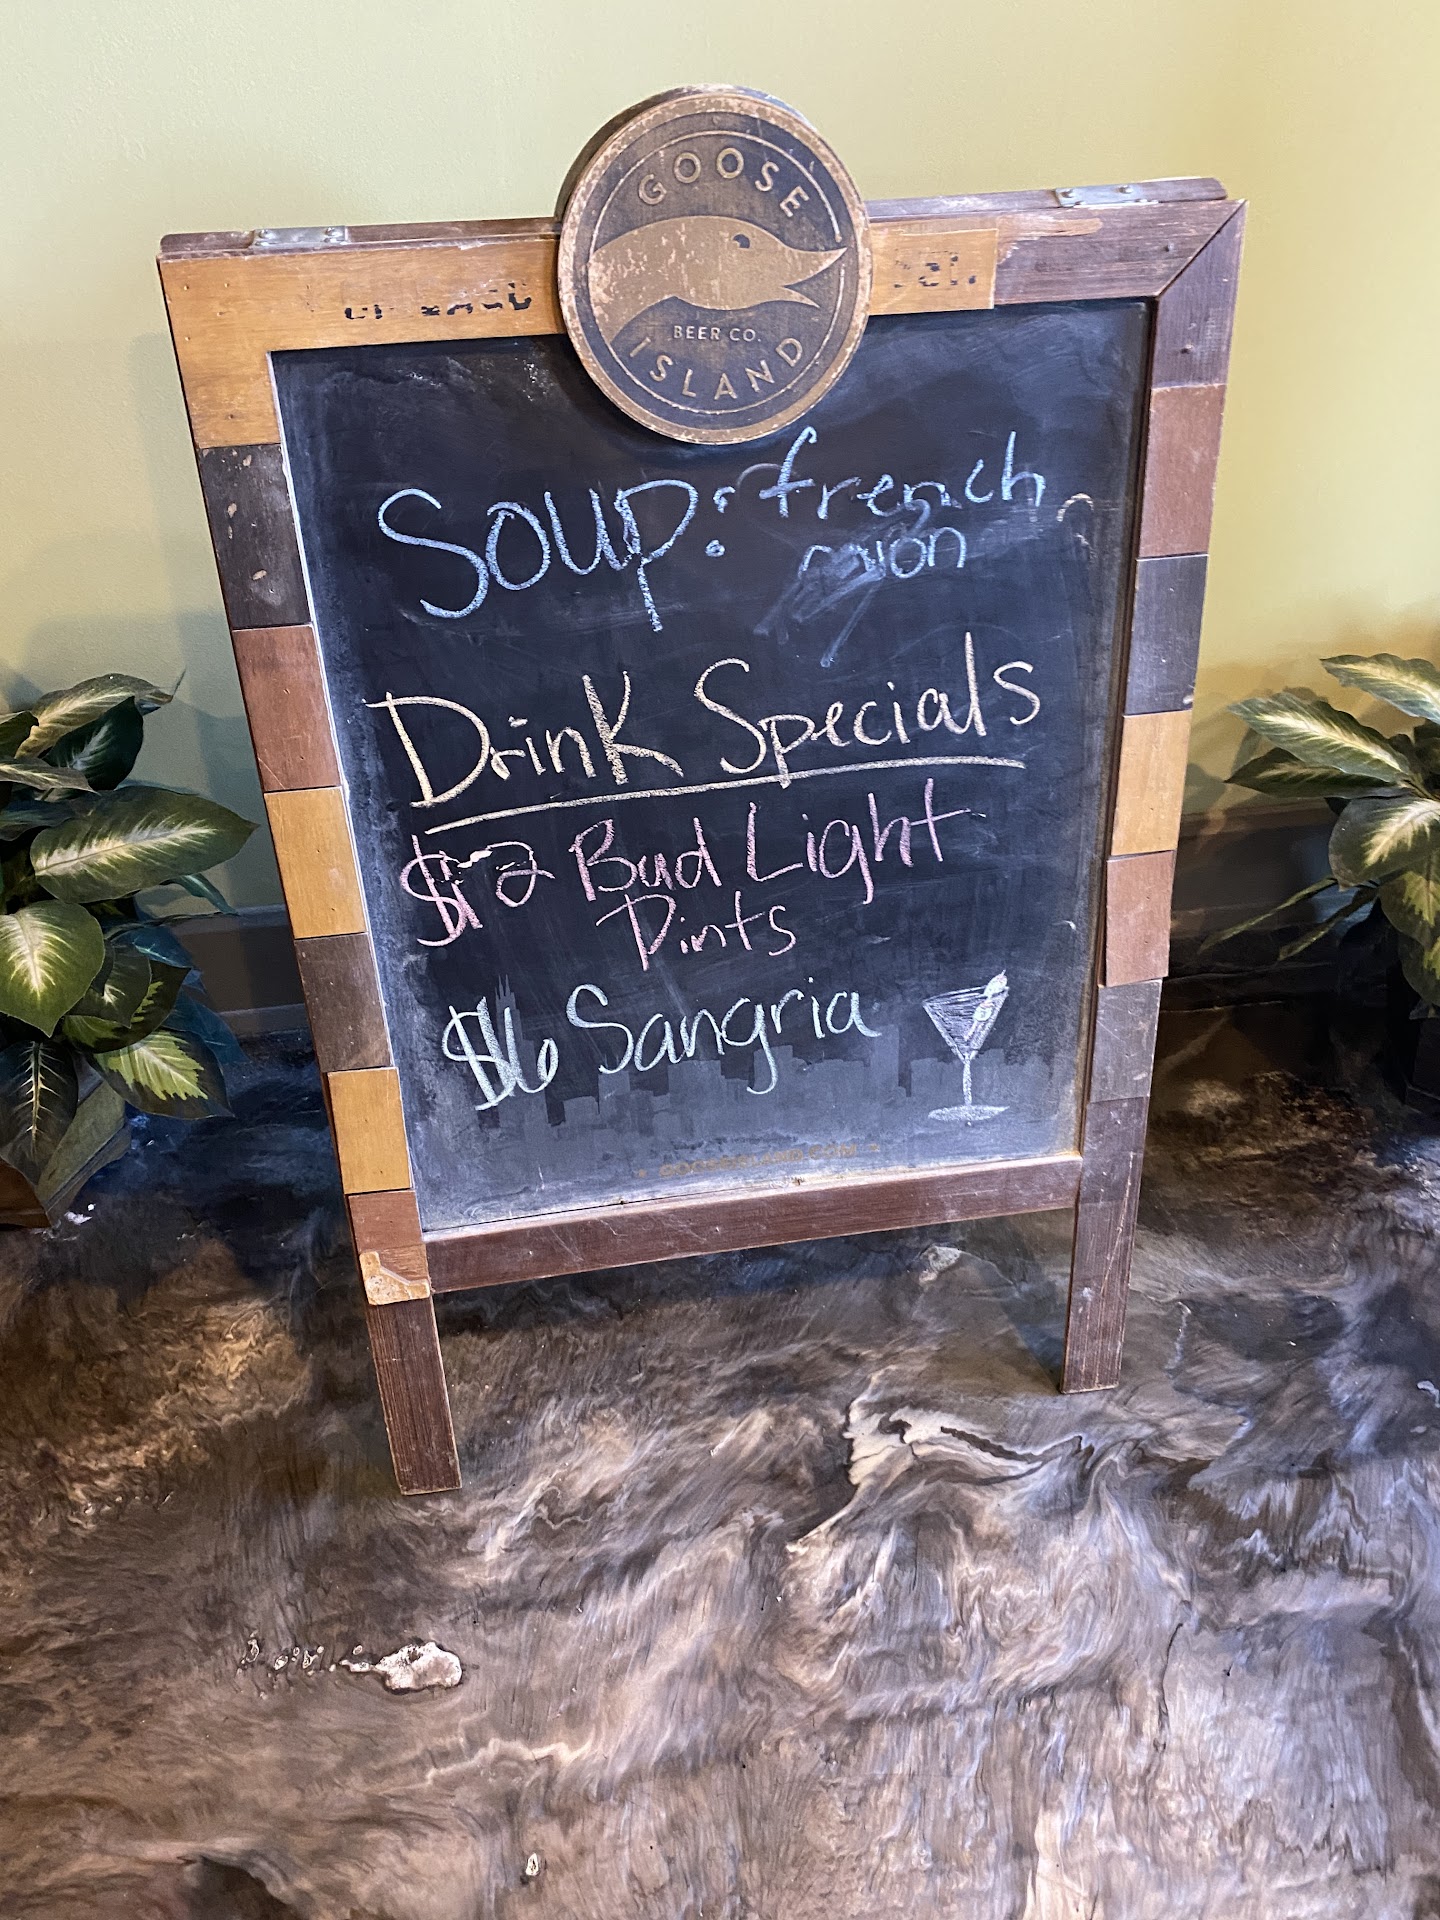 GOOSE
BEER CO.
ISLAND
Soup: french
onion
Drink Specials
$2 Bud Light
Pints
$6 Sangria
GOOSEISLAND.COM